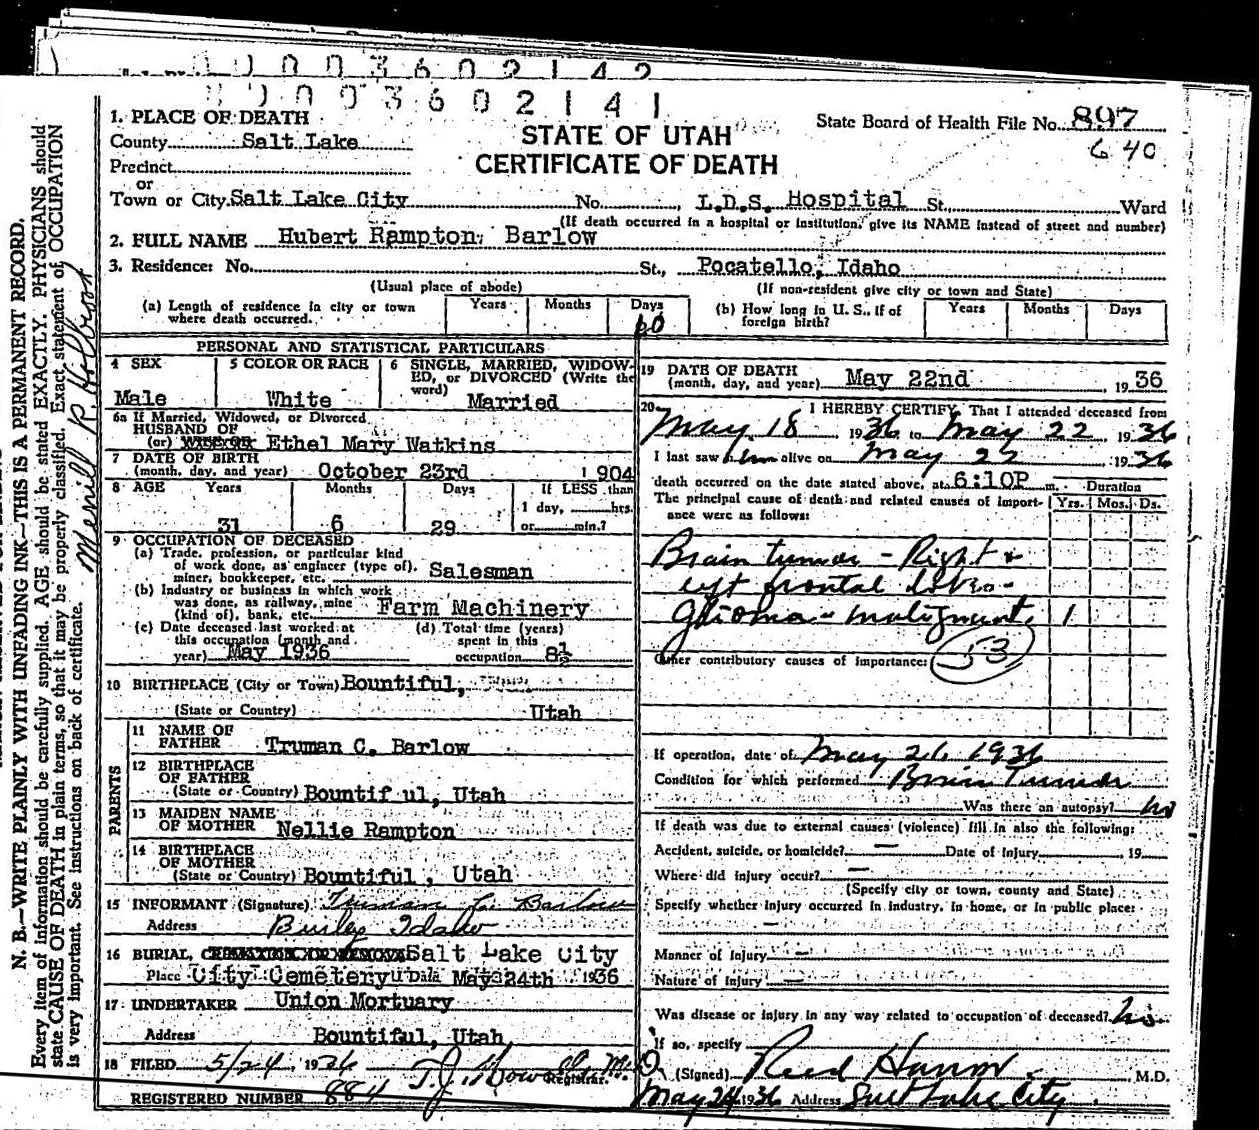 0 0 0 0 3 6 0 2 1 4 2
0 0 0 3 6 0 2 1 4 1
1. PLACE OF DEATH
County Salt Lake
Precinct
or
Town or City Salt Lake City No. L.D.S. Hospital St. Ward
(If death occurred in a hospital or institution, give its NAME instead of street and number)
STATE OF UTAH
CERTIFICATE OF DEATH
State Board of Health File No. 897
640
2. FULL NAME Hubert Rampton Barlow
3. Residence: No. St., Pocatello, Idaho
(Usual place of abode) (If non-resident give city or town and State)
(a) Length of residence in city or town where death occurred. Years Months Days
(b) How long in U. S., if of foreign birth? Years Months Days
PERSONAL AND STATISTICAL PARTICULARS
4 SEX
Male
5 COLOR OR RACE
White
6 SINGLE, MARRIED, WIDOWED, or DIVORCED (Write the word)
Married
6a If Married, Widowed, or Divorced
HUSBAND OF
(or) Ethel Mary Watkins
7 DATE OF BIRTH
(month, day, and year) October 23rd 1904
8 AGE Years Months Days If LESS than
1 day, hrs.
31 6 29 or min.?
9 OCCUPATION OF DECEASED
(a) Trade, profession, or particular kind
of work done, as engineer (type of),
miner, bookkeeper, etc. Salesman
(b) Industry or business in which work
was done, as railway, mine
(kind of), bank, etc. Farm Machinery
(c) Date deceased last worked at
this occupation (month and
year) May 1936
(d) Total time (years)
spent in this
occupation 8½
10 BIRTHPLACE (City or Town) Bountiful,
(State or Country) Utah
PARENTS
11 NAME OF
FATHER Truman C. Barlow
12 BIRTHPLACE
OF FATHER
(State or Country) Bountiful, Utah
13 MAIDEN NAME
OF MOTHER Nellie Rampton
14 BIRTHPLACE
OF MOTHER
(State or Country) Bountiful, Utah
15 INFORMANT (Signature) Truman C. Barlow
Address Burley Idaho
16 BURIAL, Salt Lake City
Place City Cemetery Date May 24th 1936
17 UNDERTAKER Union Mortuary
Address Bountiful, Utah
18 FILED 5/24 1936 T.J. Howells M.D.
Registrar.
REGISTERED NUMBER 884
19 DATE OF DEATH
(month, day, and year) May 22nd, 1936
20 I HEREBY CERTIFY, That I attended deceased from
May 18 1936 to May 22 1936
I last saw him alive on May 22 1936
death occurred on the date stated above, at 6:10P m. Duration
The principal cause of death and related causes of importance were as follows: Yrs. Mos. Ds.
Brain tumor - Right &
left frontal lobes -
Glioma - malignant. 1
Other contributory causes of importance: 53
If operation, date of May 21, 1936
Condition for which performed Brain Tumor
Was there an autopsy? no
If death was due to external causes (violence) fill in also the following:
Accident, suicide, or homicide? — Date of Injury 19
Where did injury occur? —
(Specify city or town, county and State)
Specify whether injury occurred in industry, in home, or in public place:
—
Manner of Injury —
Nature of Injury —
Was disease or injury in any way related to occupation of deceased? no
If so, specify
(Signed) Reed Harrow M.D.
May 24 1936 Address Salt Lake City
N. B.—WRITE PLAINLY WITH UNFADING INK—THIS IS A PERMANENT RECORD.
Every item of information should be carefully supplied. AGE should be stated EXACTLY. PHYSICIANS should
state CAUSE OF DEATH in plain terms, so that it may be properly classified. Exact statement of OCCUPATION
is very important. See instructions on back of certificate.
Merrill R Holbrook